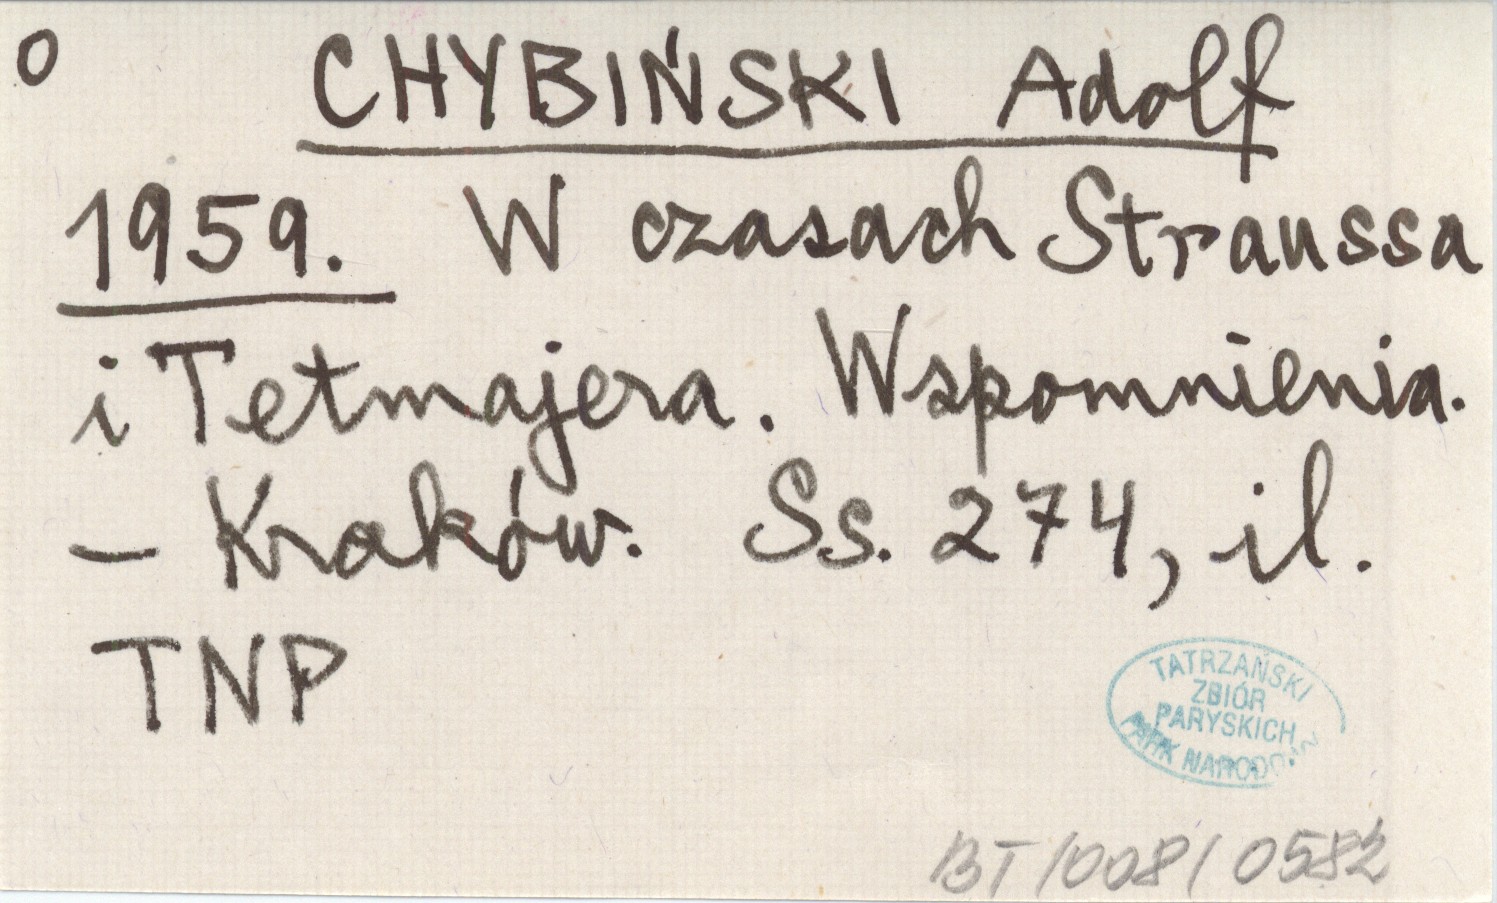 O CHYBIŃSKI Adolf
1959. W czasach Straussa
i Tetmajera. Wspomnienia.
– Kraków. Ss. 274, il.
TNP
TATRZAŃSKI
ZBIÓR
PARYSKICH
PARK NARODOWY
BT/008/0582